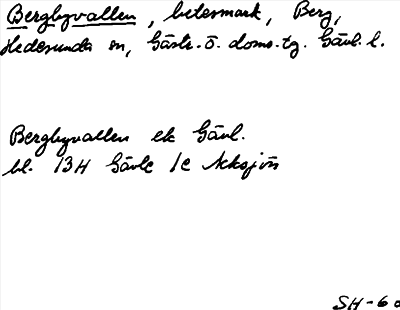 Bergbyvallen, betesmark, Berg,
Hedesunda sn, Gästr. ö. doms. tg. Gävl. l.
Bergbyvallen ek Gävl.
bl. 13H Gävle 1c
SH-60